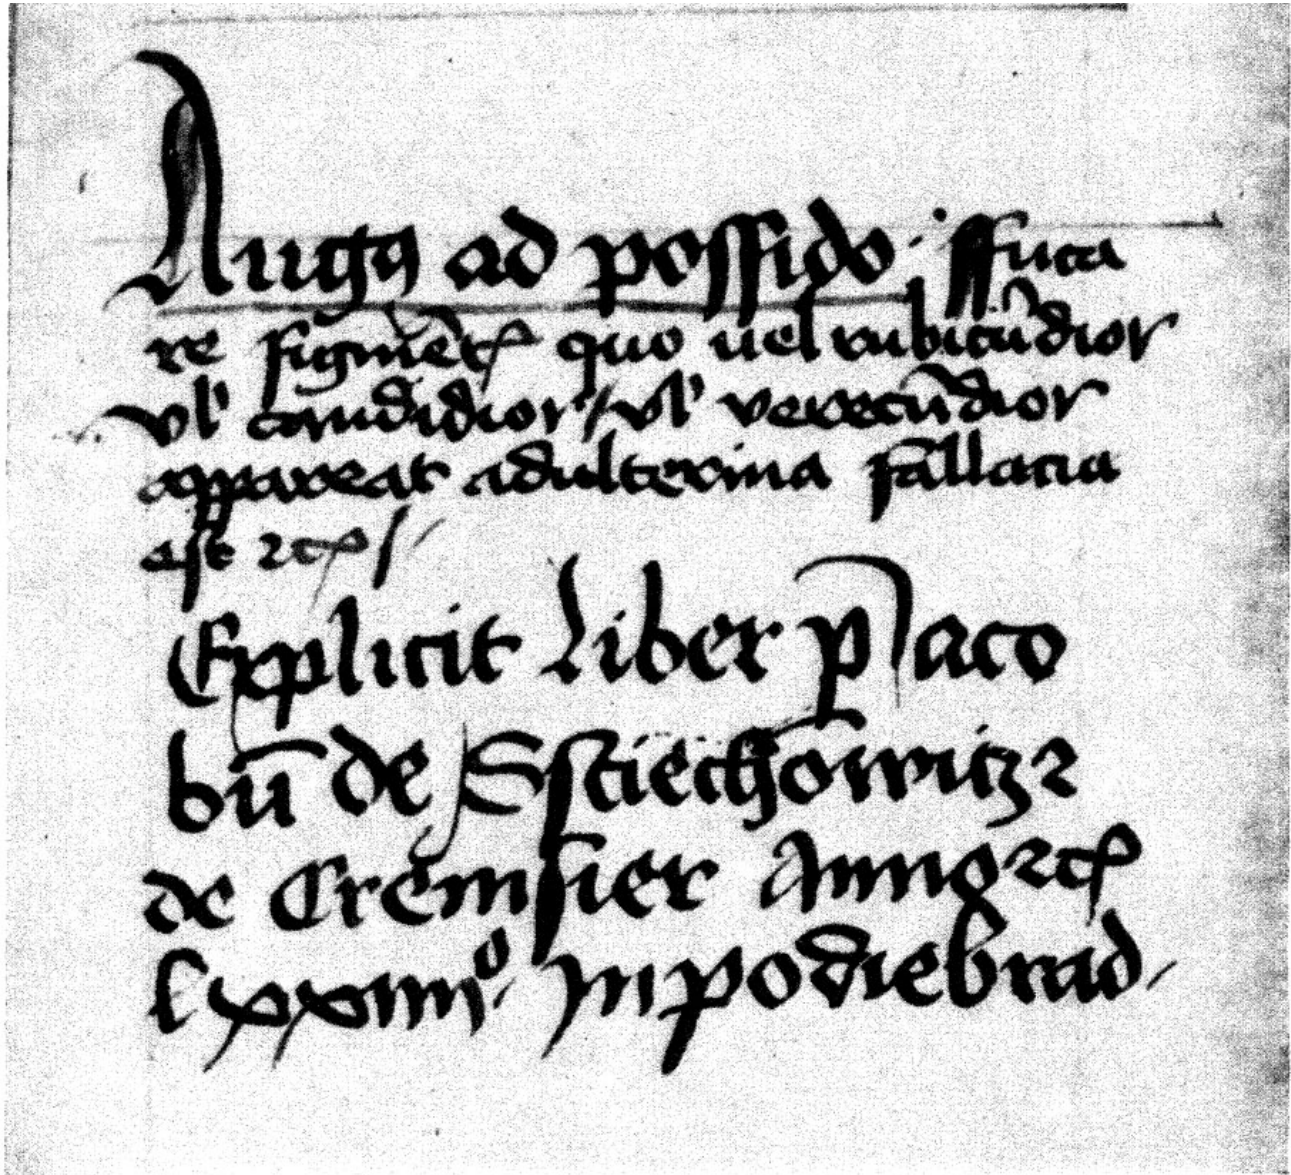 Augꝯ ad possido · ffuca
re figmētꝭ quo uel rubicūdior
vl' candidior / vl' verecūdior
appareat adulterina fallacia
est ⁊cꝭ /
Explicit liber p Jaco
bū de Sstiechowitz ⁊
de Cremsier Anno ⁊cꝭ
lxxiiiiº Jn podiebrad